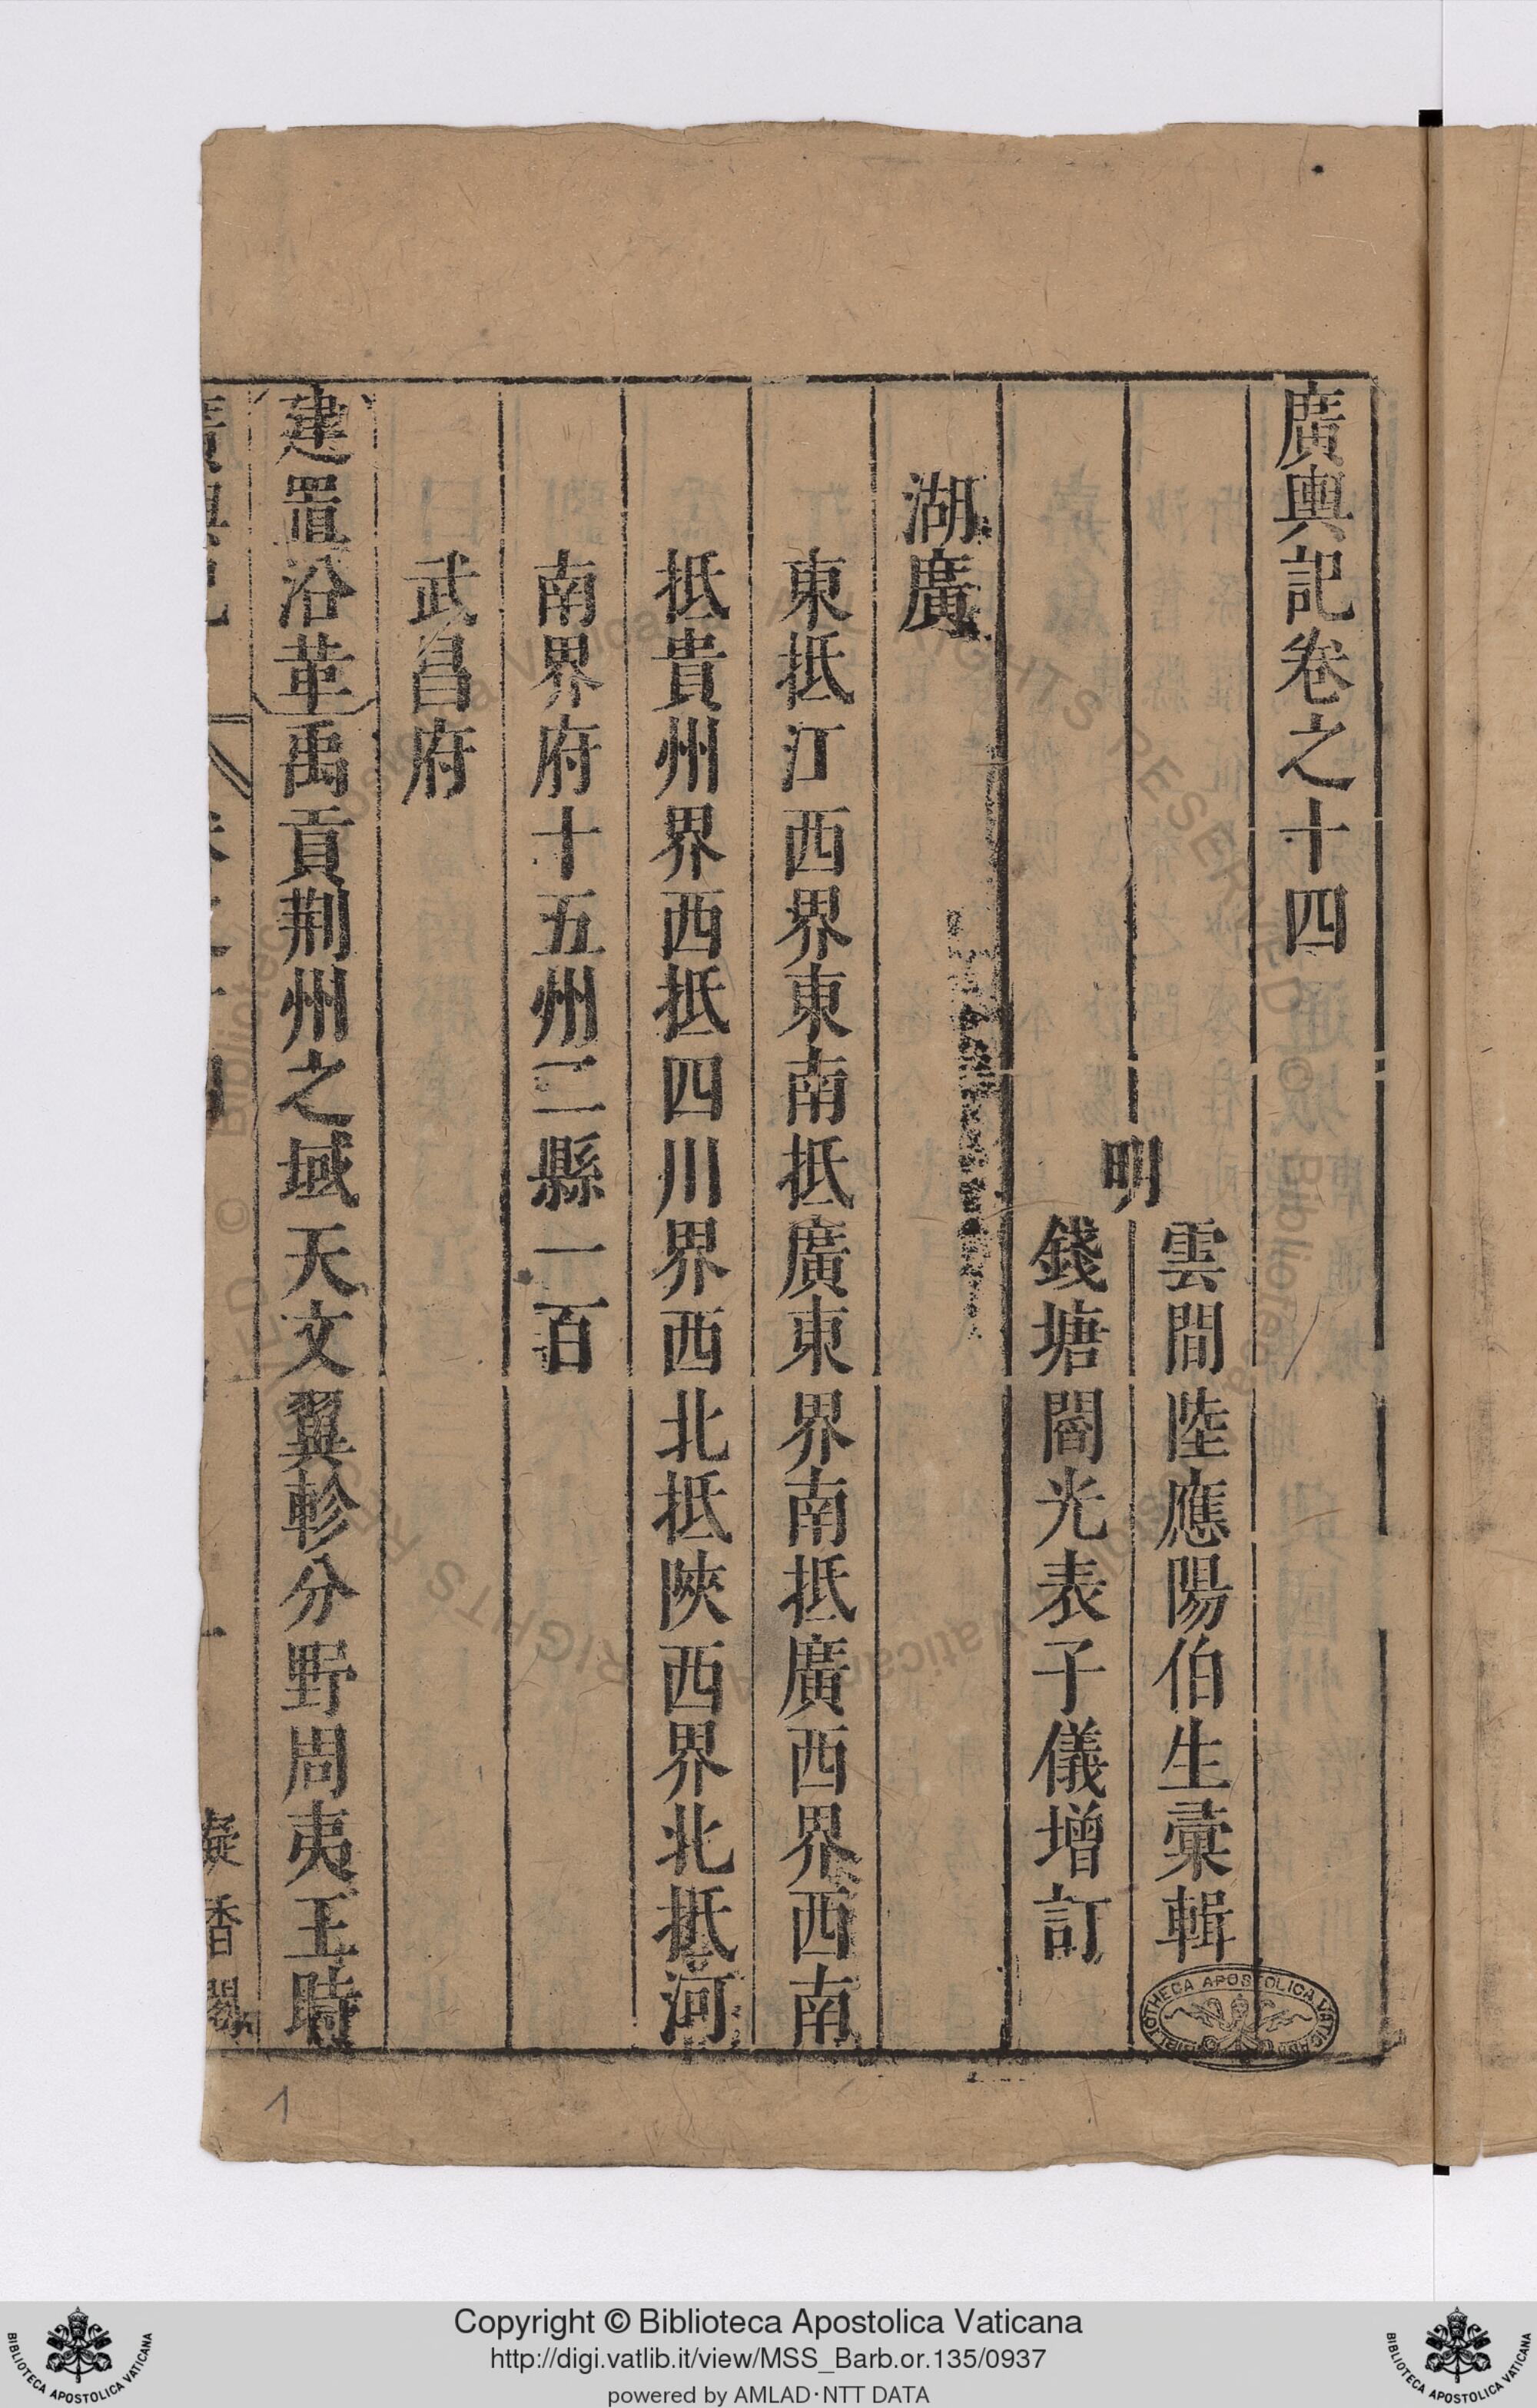 廣輿記卷之十四
明
雲間陸應陽伯生彚輯
錢塘閻光表子儀增訂
湖廣
東抵江西界東南抵廣東界南抵廣西界西南
抵貴州界西抵四川界西北抵陝西界北抵河
南界府十五州二縣一百
武昌府
建置沿革禹貢荆州之域天文翼軫分野周夷王時
凝香閣
1
BIBLIOTHECA APOSTOLICA VATICANA
Copyright © Biblioteca Apostolica Vaticana
http://digi.vatlib.it/view/MSS_Barb.or.135/0937
powered by AMLAD·NTT DATA
BIBLIOTECA APOSTOLICA VATICANA
BIBLIOTECA APOSTOLICA VATICANA